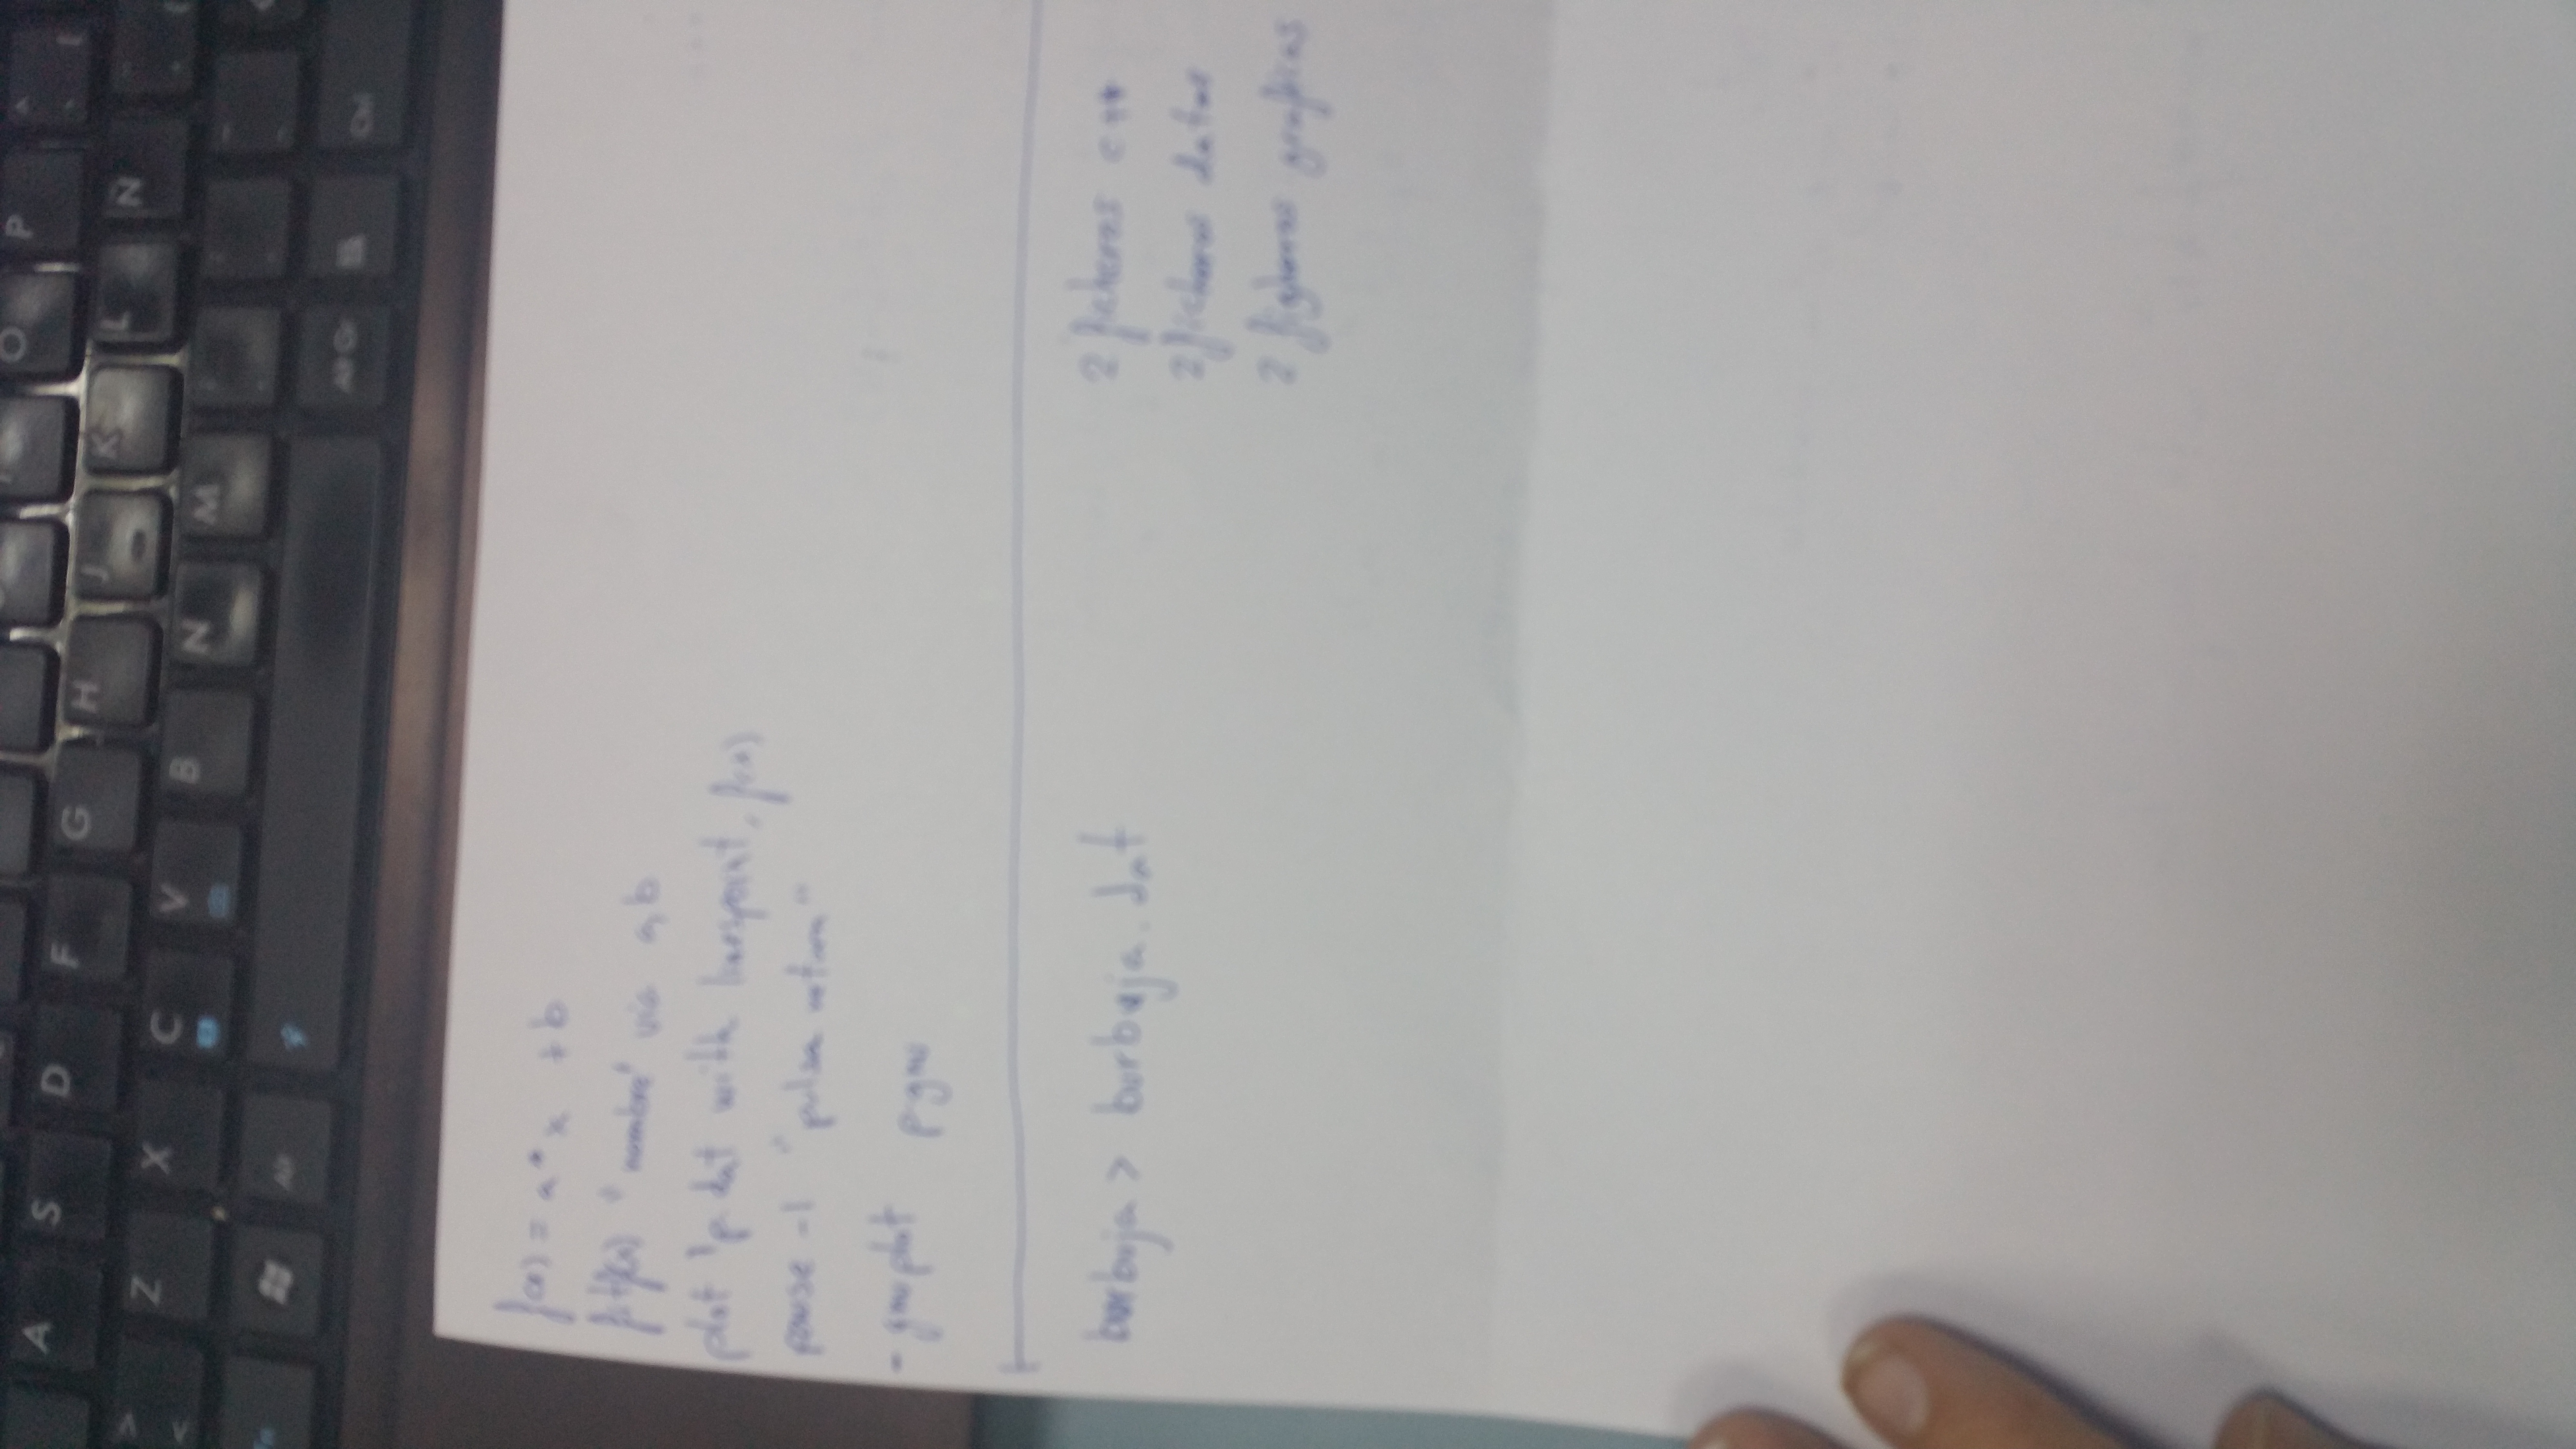 A S D F G H J K L Ñ
O P
> < Z X C V B N M
Alt Alt Gr Ctrl
f(x) = a * x + b
fit f(x) "nombre" via a,b
plot 'p.dat with linespoint, f(x)
pause -1 "pulsa return"
- gnuplot p.gnu
burbuja > burbuja.dat
2 ficheros c++
2 ficheros datos
2 figheros graficas